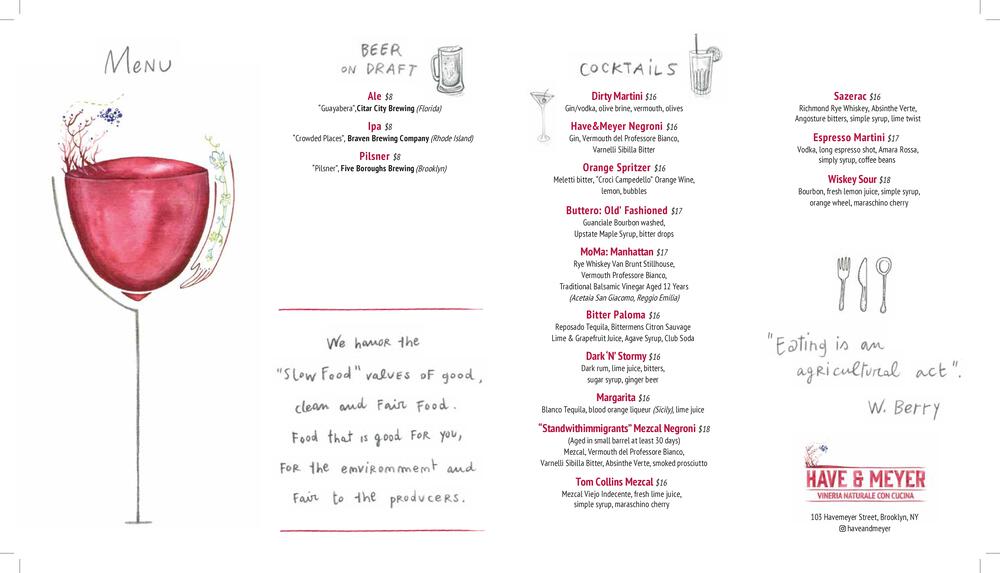 Menu
BEER
ON DRAFT
Ale $8
"Guayabera",Citar City Brewing (Florida)
Ipa $8
"Crowded Places", Braven Brewing Company (Rhode Island)
Pilsner $8
"Pilsner", Five Boroughs Brewing (Brooklyn)
We honor the
"Slow Food" values of good,
clean and Fair Food.
Food that is good For you,
For the environmment and
Fair to the producers.
COCKTAILS
Dirty Martini $16
Gin/vodka, olive brine, vermouth, olives
Have&Meyer Negroni $16
Gin, Vermouth del Professore Bianco,
Varnelli Sibilla Bitter
Orange Spritzer $16
Meletti bitter, "Croci Campedello" Orange Wine,
lemon, bubbles
Buttero: Old' Fashioned $17
Guanciale Bourbon washed,
Upstate Maple Syrup, bitter drops
MoMa: Manhattan $17
Rye Whiskey Van Brunt Stillhouse,
Vermouth Professore Bianco,
Traditional Balsamic Vinegar Aged 12 Years
(Acetaia San Giacomo, Reggio Emilia)
Bitter Paloma $16
Reposado Tequila, Bittermens Citron Sauvage
Lime & Grapefruit Juice, Agave Syrup, Club Soda
Dark 'N' Stormy $16
Dark rum, lime juice, bitters,
sugar syrup, ginger beer
Margarita $16
Blanco Tequila, blood orange liqueur (Sicily), lime juice
"Standwithimmigrants" Mezcal Negroni $18
(Aged in small barrel at least 30 days)
Mezcal, Vermouth del Professore Bianco,
Varnelli Sibilla Bitter, Absinthe Verte, smoked prosciutto
Tom Collins Mezcal $16
Mezcal Viejo Indecente, fresh lime juice,
simple syrup, maraschino cherry
Sazerac $16
Richmond Rye Whiskey, Absinthe Verte,
Angosture bitters, simple syrup, lime twist
Espresso Martini $17
Vodka, long espresso shot, Amara Rossa,
simply syrup, coffee beans
Wiskey Sour $18
Bourbon, fresh lemon juice, simple syrup,
orange wheel, maraschino cherry
"Eating is an
agricultural act".
W. Berry
HAVE & MEYER
VINERIA NATURALE CON CUCINA
103 Havemeyer Street, Brooklyn, NY
haveandmeyer